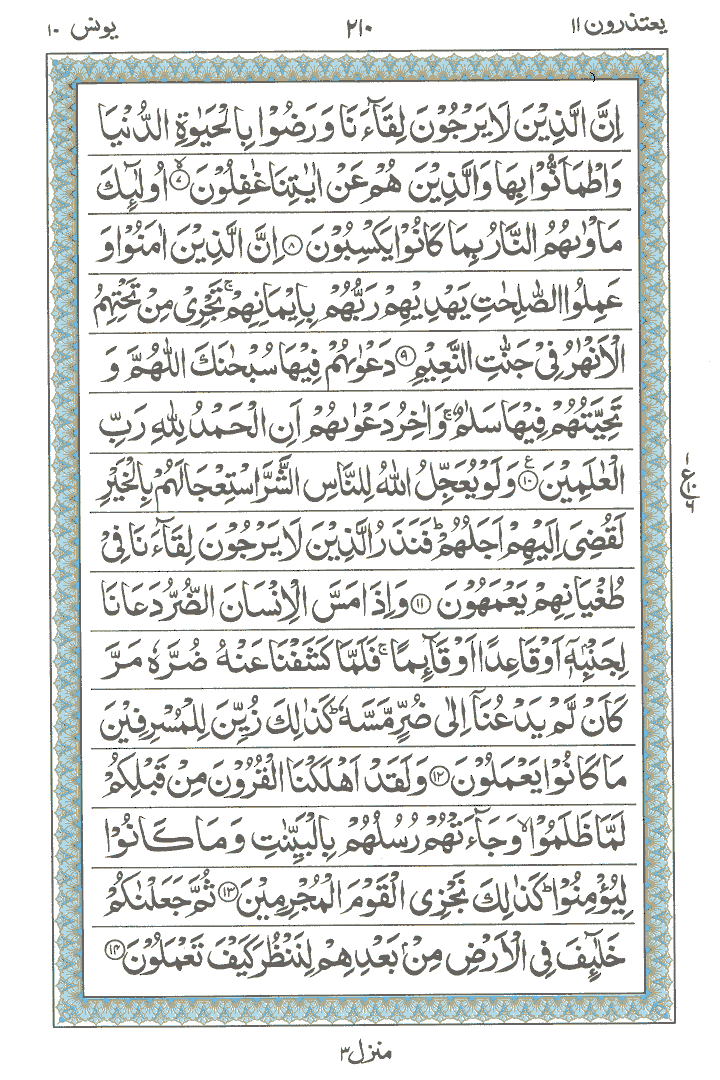 یعتذرون ۱۱ ۲۱۰ یونس ۱۰
اِنَّ الَّذِيْنَ لَا يَرْجُوْنَ لِقَآءَنَا وَ رَضُوْا بِالْحَيٰوةِ الدُّنْيَا
وَاطْمَاَنُّوْا بِهَا وَالَّذِيْنَ هُمْ عَنْ اٰيٰتِنَا غٰفِلُوْنَ ۙ‏﴿۷﴾ اُولٰٓئِكَ
مَاْوٰىهُمُ النَّارُ بِمَا كَانُوْا يَكْسِبُوْنَ ﴿۸﴾ اِنَّ الَّذِيْنَ اٰمَنُوْا وَ
عَمِلُوا الصّٰلِحٰتِ يَهْدِيْهِمْ رَبُّهُمْ بِاِيْمَانِهِمْ ۚ تَجْرِىْ مِنْ تَحْتِهِمُ
الْاَنْهٰرُ فِىْ جَنّٰتِ النَّعِيْمِ ﴿۹﴾ دَعْوٰىهُمْ فِيْهَا سُبْحٰنَكَ اللّٰهُمَّ وَ
تَحِيَّتُهُمْ فِيْهَا سَلٰمٌ ۚ وَاٰخِرُ دَعْوٰىهُمْ اَنِ الْحَمْدُ لِلّٰهِ رَبِّ
الْعٰلَمِيْنَ ﴿۱۰﴾ ع وَلَوْ يُعَجِّلُ اللّٰهُ لِلنَّاسِ الشَّرَّ اسْتِعْجَالَهُمْ بِالْخَيْرِ
۱ ع ۱۰ ۶
لَقُضِىَ اِلَيْهِمْ اَجَلُهُمْ ؕ فَنَذَرُ الَّذِيْنَ لَا يَرْجُوْنَ لِقَآءَنَا فِىْ
طُغْيَانِهِمْ يَعْمَهُوْنَ ﴿۱۱﴾ وَاِذَا مَسَّ الْاِنْسَانَ الضُّرُّ دَعَانَا
لِجَنْۢبِهٖۤ اَوْ قَاعِدًا اَوْ قَآئِمًا ۚ فَلَمَّا كَشَفْنَا عَنْهُ ضُرَّهٗ مَرَّ
كَاَنْ لَّمْ يَدْعُنَاۤ اِلٰى ضُرٍّ مَّسَّهٗ ؕ كَذٰلِكَ زُيِّنَ لِلْمُسْرِفِيْنَ
مَا كَانُوْا يَعْمَلُوْنَ ﴿۱۲﴾ وَلَقَدْ اَهْلَكْنَا الْقُرُوْنَ مِنْ قَبْلِكُمْ
لَمَّا ظَلَمُوْا ۙ وَجَآءَتْهُمْ رُسُلُهُمْ بِالْبَيِّنٰتِ وَمَا كَانُوْا
لِيُؤْمِنُوْا ؕ كَذٰلِكَ نَجْزِى الْقَوْمَ الْمُجْرِمِيْنَ ﴿۱۳﴾ ثُمَّ جَعَلْنٰكُمْ
خَلٰٓئِفَ فِى الْاَرْضِ مِنْۢ بَعْدِهِمْ لِنَنْظُرَ كَيْفَ تَعْمَلُوْنَ ﴿۱۴﴾
منزل ۳